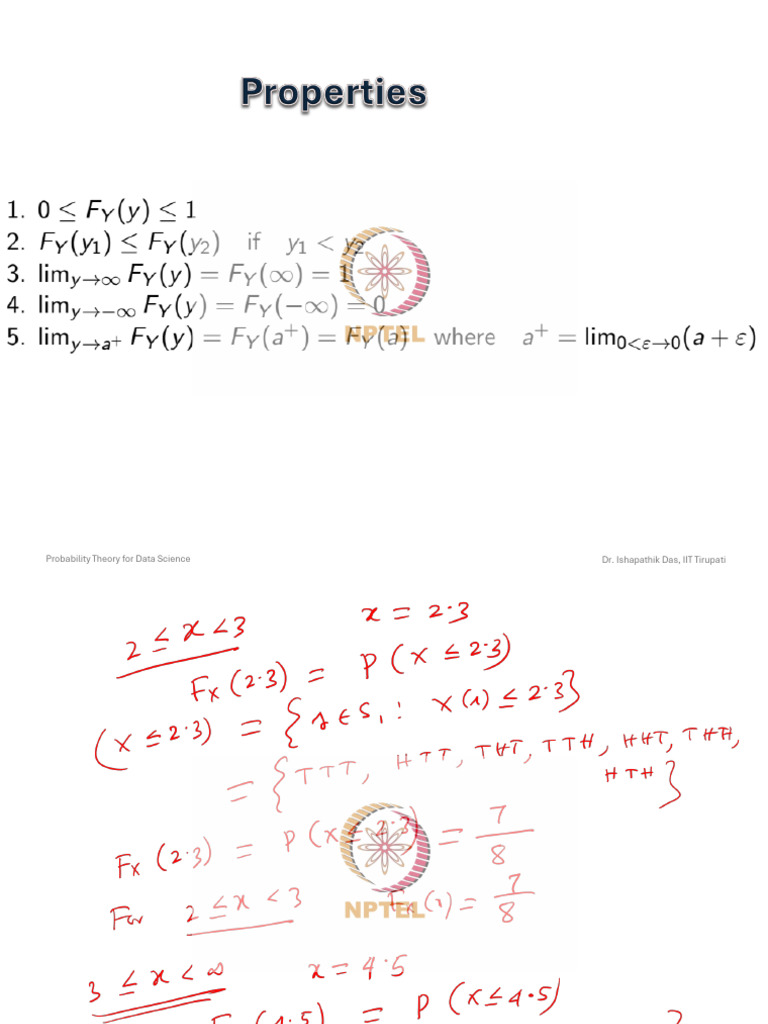 Properties
1. 0 ≤ F_Y(y) ≤ 1
2. F_Y(y₁) ≤ F_Y(y₂) if y₁ < y₂
3. lim_{y→∞} F_Y(y) = F_Y(∞) = 1
4. lim_{y→−∞} F_Y(y) = F_Y(−∞) = 0
5. lim_{y→a⁺} F_Y(y) = F_Y(a⁺) = F_Y(a) where a⁺ = lim_{0<ε→0}(a + ε)
NPTEL
Probability Theory for Data Science
Dr. Ishapathik Das, IIT Tirupati
2 ≤ x < 3 x = 2.3
F_X(2.3) = P(X ≤ 2.3)
(X ≤ 2.3) = {s ∈ S₁ : X(s) ≤ 2.3}
= {TTT, HTT, THT, TTH, HHT, THH,
HTH}
F_X(2.3) = P(X ≤ 2.3) = 7/8
For 2 ≤ x < 3 F_X(x) = 7/8
NPTEL
3 ≤ x < ∞ x = 4.5
F_X(4.5) = P(X ≤ 4.5)